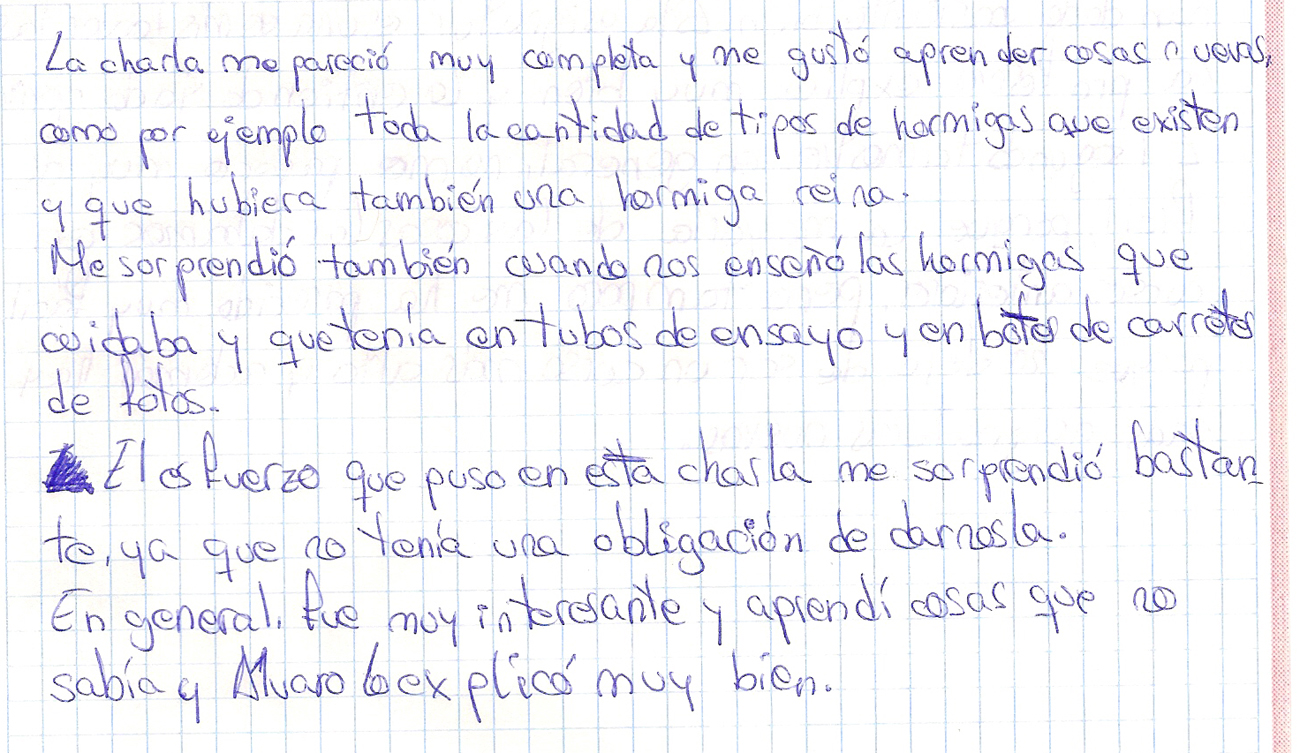 La charla me pareció muy completa y me gustó aprender cosas nuevas,
como por ejemplo toda la cantidad de tipos de hormigas que existen
y que hubiera también una hormiga reina.
Me sorprendió también cuando nos enseñó las hormigas que
cuidaba y que tenía en tubos de ensayo y en botes de carretes
de fotos.
El esfuerzo que puso en esta charla me sorprendió bastan-
te, ya que no tenía una obligación de darnosla.
En general, fue muy interesante y aprendí cosas que no
sabía y Alvaro lo explicó muy bien.